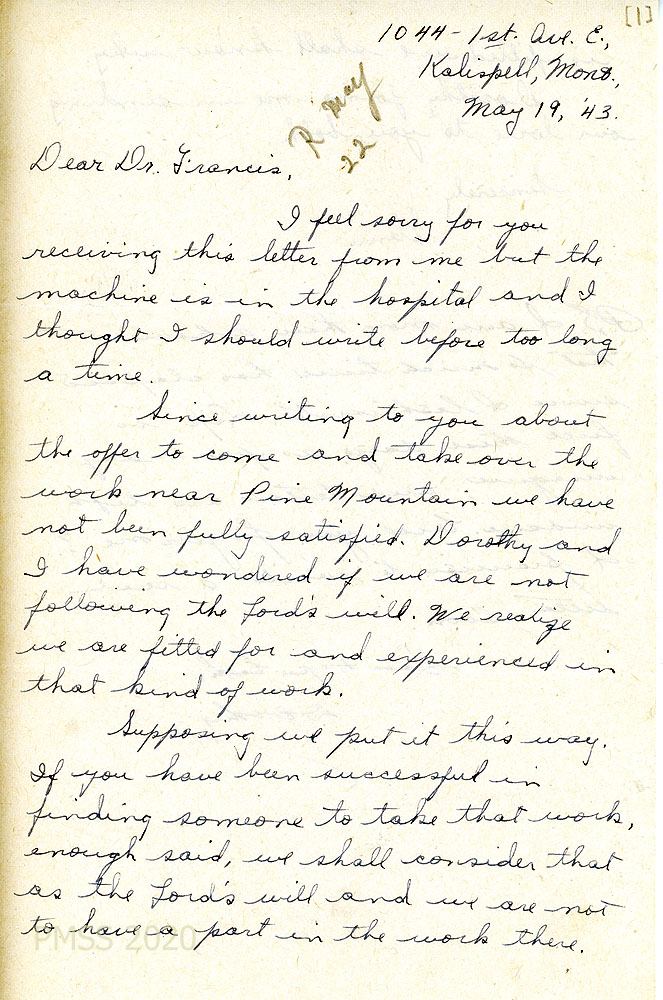 [1]
1044 - 1st. Ave. E.,
Kalispell, Mont.,
May 19, '43.
R May
22
Dear Dr. Francis,
I feel sorry for you
receiving this letter from me but the
machine is in the hospital and I
thought I should write before too long
a time.
Since writing to you about
the offer to come and take over the
work near Pine Mountain we have
not been fully satisfied. Dorothy and
I have wondered if we are not
following the Lord's will. We realize
we are fitted for and experienced in
that kind of work.
Supposing we put it this way.
If you have been successful in
finding someone to take that work,
enough said, we shall consider that
as the Lord's will and we are not
to have a part in the work there.
PMSS 2020